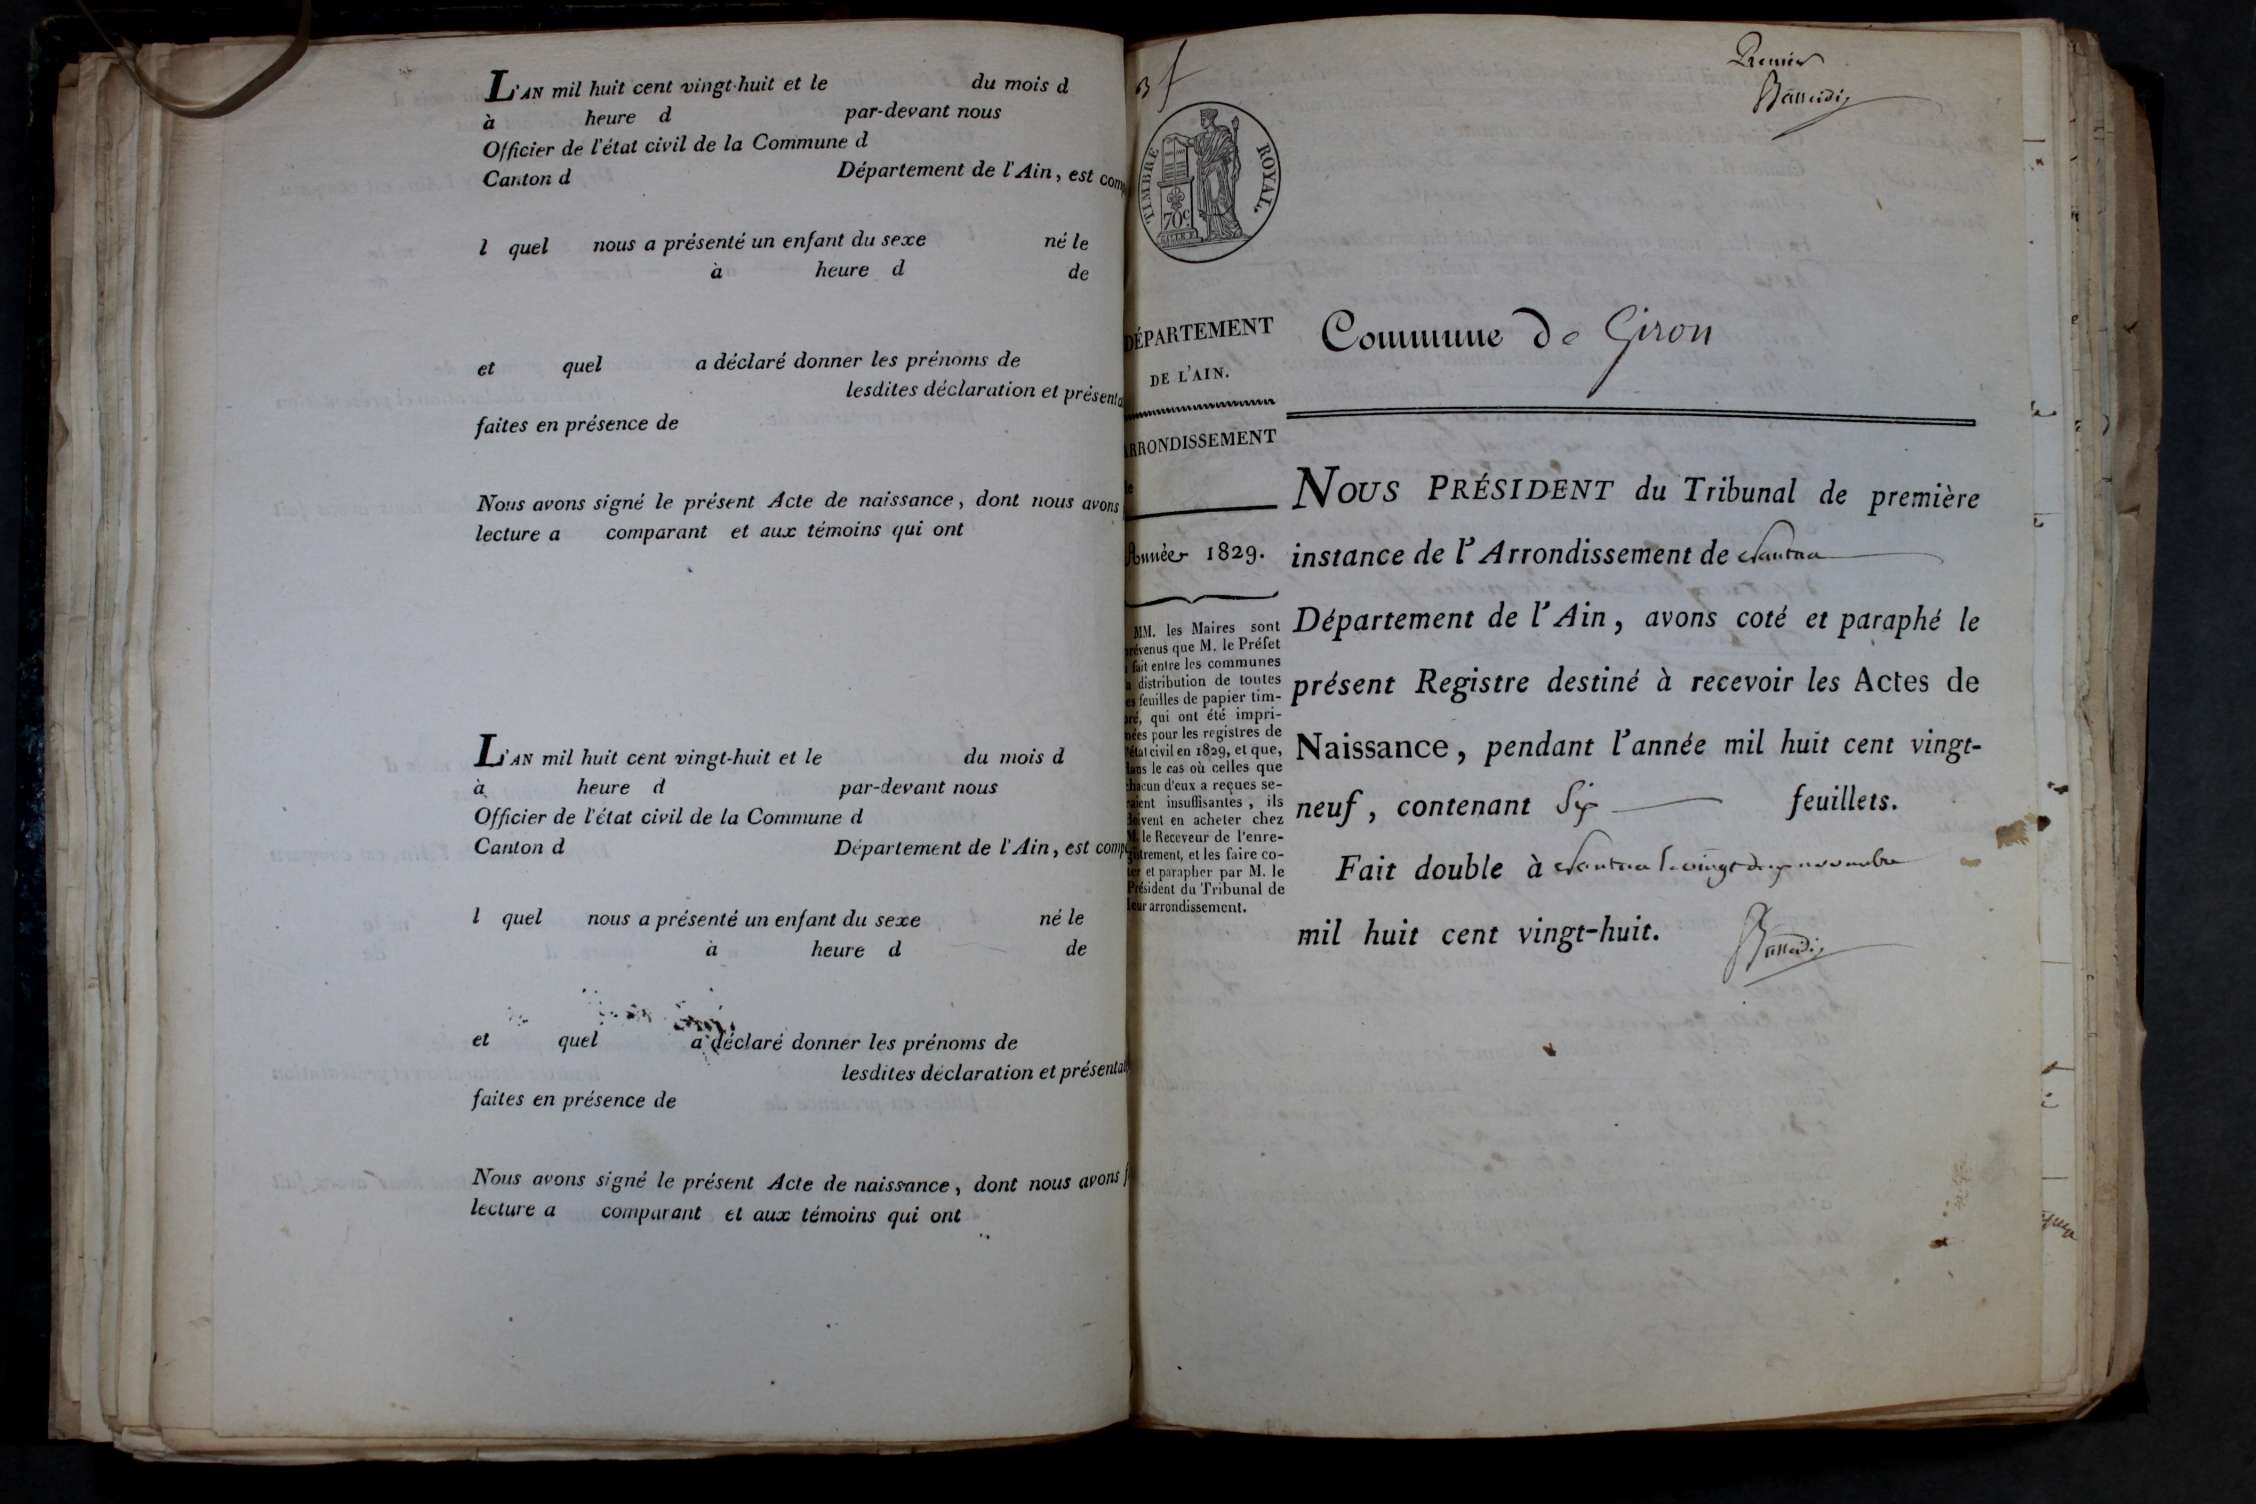 L'AN mil huit cent vingt-huit et le du mois d
à heure d par-devant nous
Officier de l'état civil de la Commune d
Canton d Département de l'Ain, est comp
l quel nous a présenté un enfant du sexe né le
à heure d de
et quel a déclaré donner les prénoms de
lesdites déclaration et présenta
faites en présence de
Nous avons signé le présent Acte de naissance, dont nous avons
lecture a comparant et aux témoins qui ont
L'AN mil huit cent vingt-huit et le du mois d
à heure d par-devant nous
Officier de l'état civil de la Commune d
Canton d Département de l'Ain, est comp
l quel nous a présenté un enfant du sexe né le
à heure d de
et quel a déclaré donner les prénoms de
lesdites déclaration et présentat
faites en présence de
Nous avons signé le présent Acte de naissance, dont nous avons f
lecture a comparant et aux témoins qui ont
Premier
TIMBRE ROYAL.
70c
DÉPARTEMENT
DE L'AIN.
ARRONDISSEMENT
de
Année 1829.
MM. les Maires sont
prévenus que M. le Préfet
a fait entre les communes
la distribution de toutes
les feuilles de papier tim-
bré, qui ont été impri-
mées pour les registres de
l'état civil en 1829, et que,
dans le cas où celles que
chacun d'eux a reçues se-
raient insuffisantes, ils
doivent en acheter chez
M. le Receveur de l'enre-
gistrement, et les faire co-
ter et parapher par M. le
Président du Tribunal de
leur arrondissement.
Commune de Giron
NOUS PRÉSIDENT du Tribunal de première
instance de l'Arrondissement de Nantua
Département de l'Ain, avons coté et paraphé le
présent Registre destiné à recevoir les Actes de
Naissance, pendant l'année mil huit cent vingt-
neuf, contenant Six feuillets.
Fait double à Nantua le vingt deux novembre
mil huit cent vingt-huit.